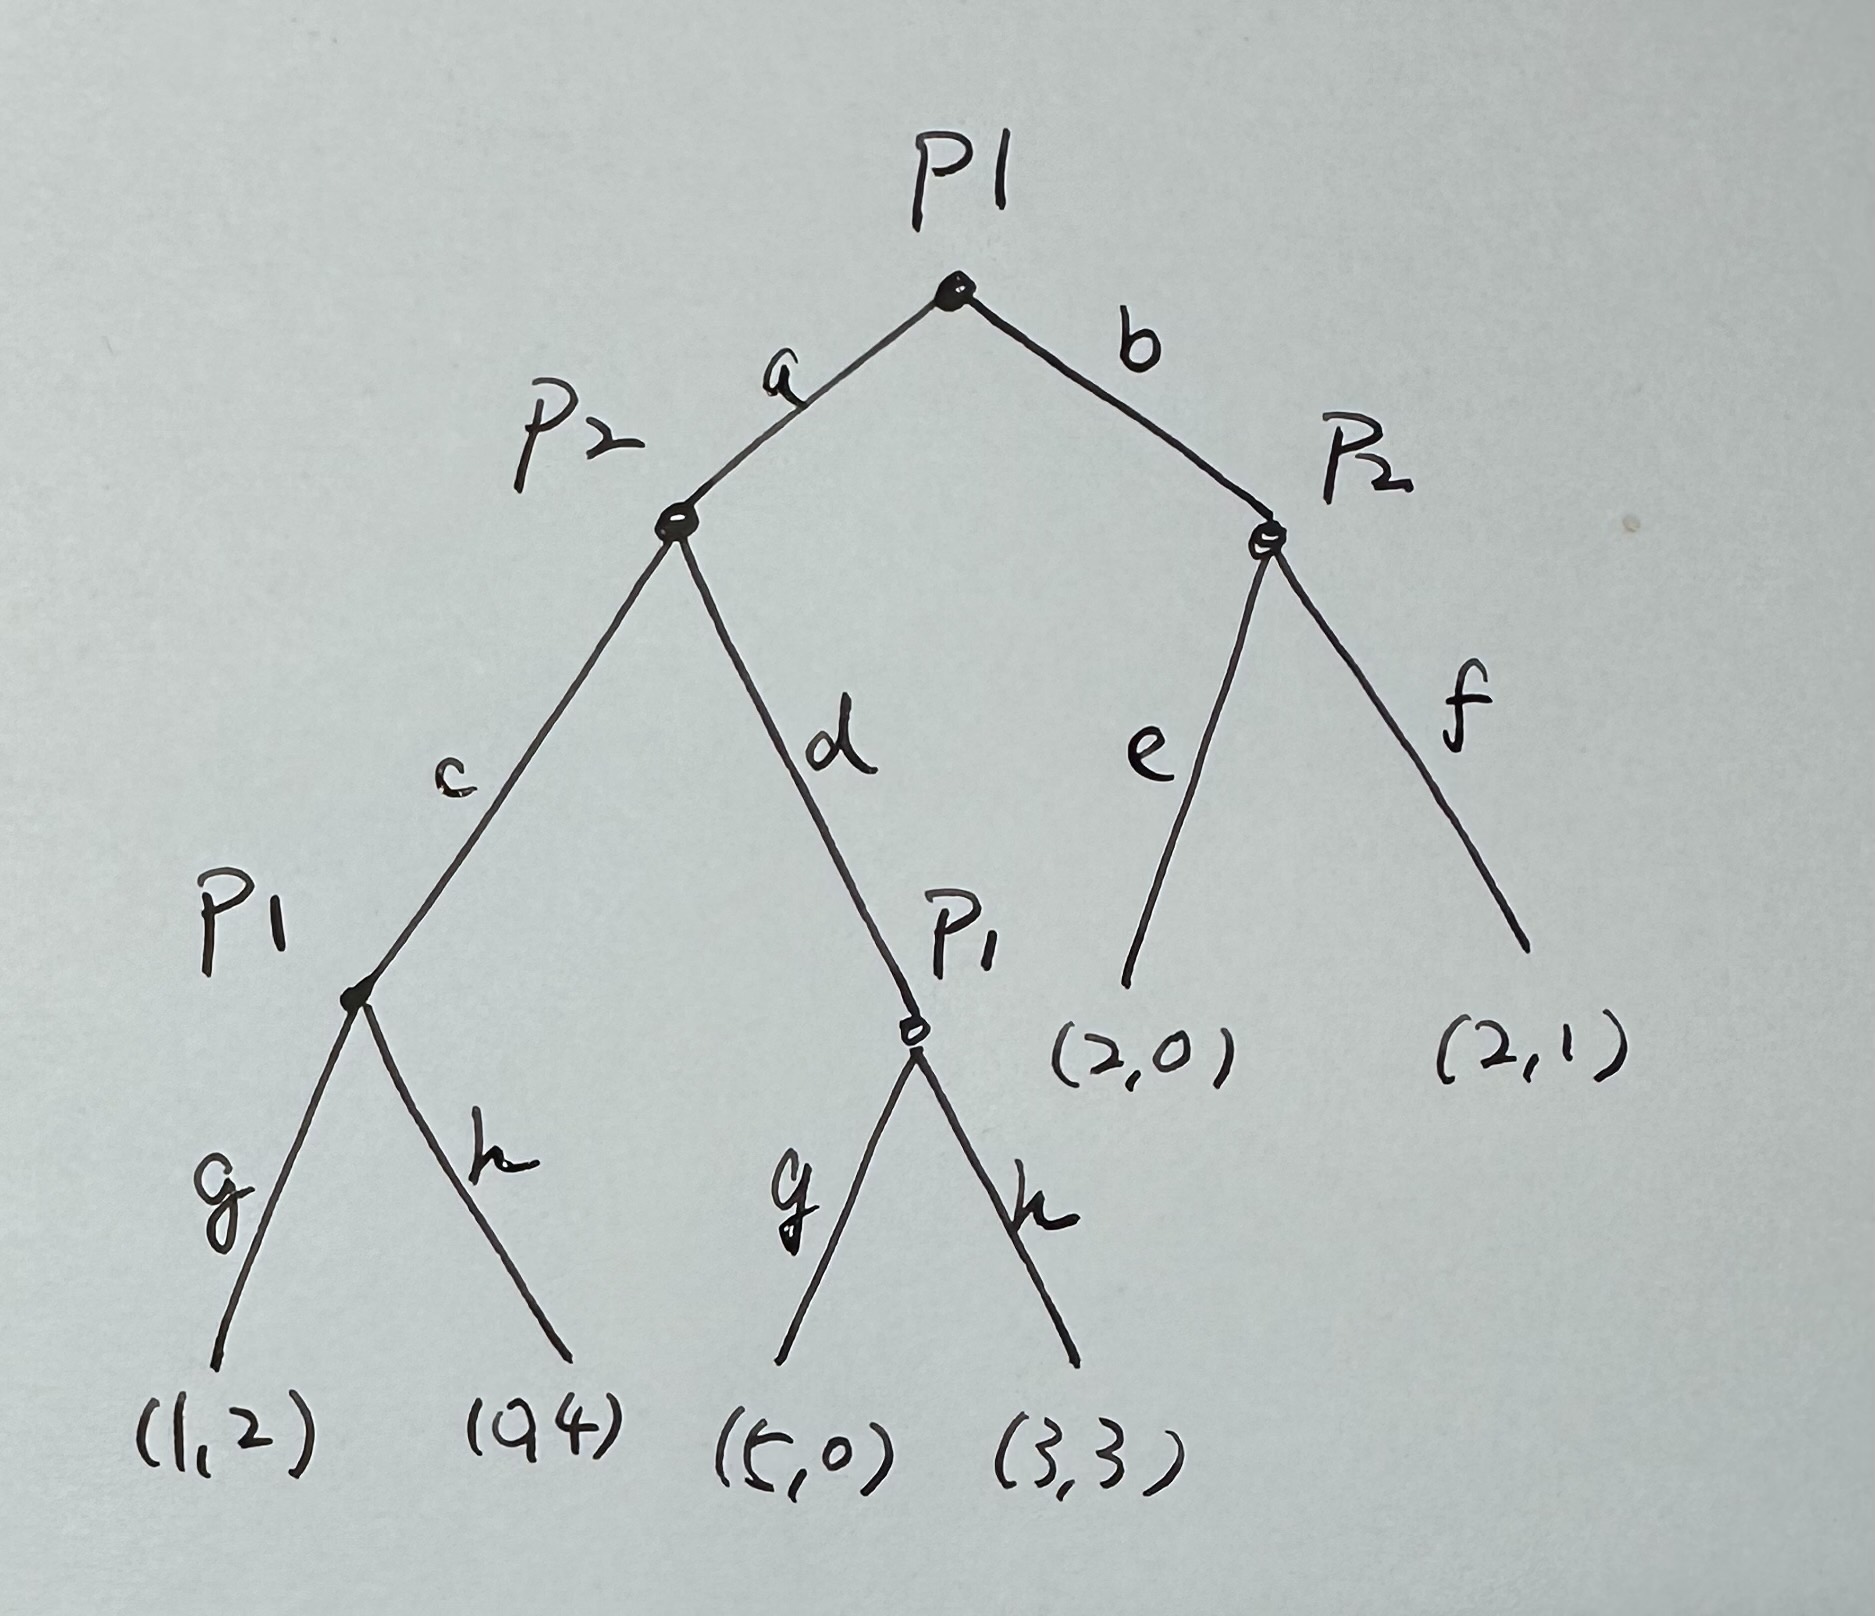 P1
a b
P2 P2
c d e f
P1 P1
(2,0) (2,1)
g h g h
(1,2) (0,4) (5,0) (3,3)